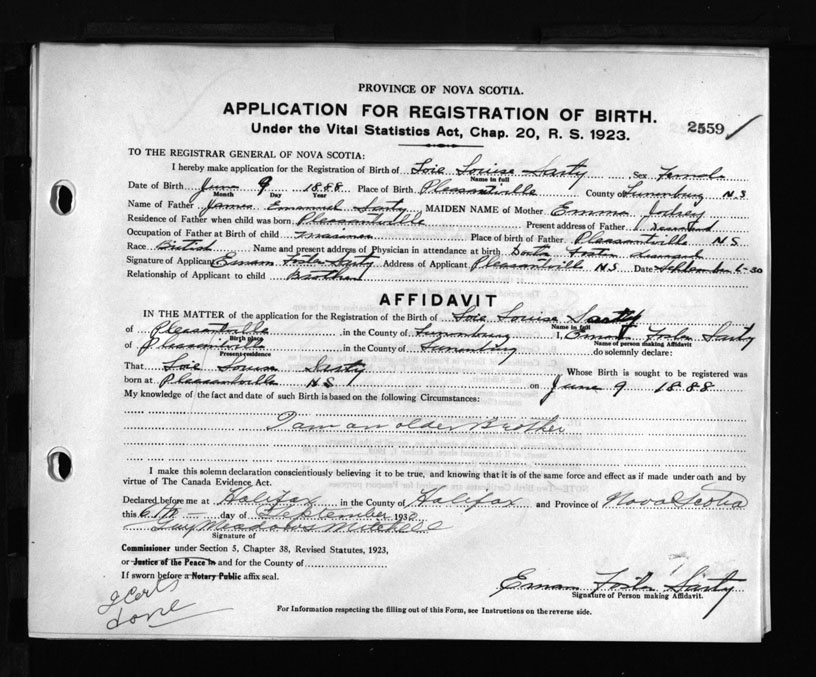 PROVINCE OF NOVA SCOTIA.
APPLICATION FOR REGISTRATION OF BIRTH. 2559
Under the Vital Statistics Act, Chap. 20, R. S. 1923.
TO THE REGISTRAR GENERAL OF NOVA SCOTIA:
I hereby make application for the Registration of Birth of Soie Louise Sarty Sex Female
Name in full
Date of Birth June 9 1888 Place of Birth Pleasantville County of Lunenburg N.S
Month Day Year
Name of Father James Emanuel Sarty MAIDEN NAME of Mother Emma
Residence of Father when child was born Pleasantville Present address of Father
Occupation of Father at Birth of child Place of birth of Father Pleasantville N S
Race British Name and present Address of Physician in attendance at birth Doctor Foster
Signature of Applicant Eman Foster Sarty Address of Applicant Pleasantville N S Date September 6-30
Relationship of Applicant to child Brother
AFFIDAVIT
IN THE MATTER of the application for the Registration of the Birth of Soie Louise Sarty
Name in full
of Pleasantville in the County of Lunenburg I, Eman Foster Sarty
Birth place Name of person making affidavit
of Pleasantville in the County of Lunenburg do solemnly declare:
Present residence
That Soie Louise Sarty Whose Birth is sought to be registered was
born at Pleasantville N S on June 9 1888
My knowledge of the fact and date of such Birth is based on the following Circumstances:
I am an older Brother
I make this solemn declaration conscientiously believing it to be true, and knowing that it is of the same force and effect as if made under oath and by
virtue of The Canada Evidence Act.
Declared before me at Halifax in the County of Halifax and Province of Nova Scotia
this 6th day of September 1930
Guy Meadows Mitchell
Signature of
Commissioner under Section 5, Chapter 38, Revised Statutes, 1923,
or Justice of the Peace in and for the County of
If sworn before a Notary Public affix seal.
Eman Foster Sarty
Signature of Person making Affidavit.
2 Certs
done
For Information respecting the filling out of this Form, see Instructions on the reverse side.